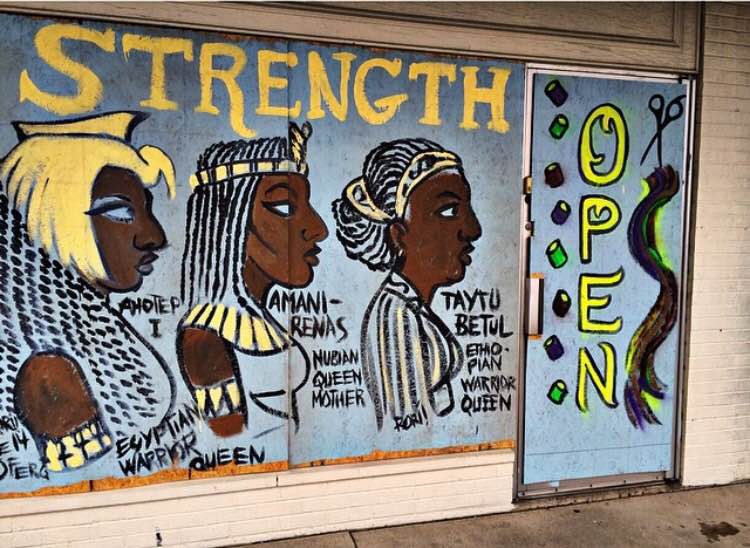 STRENGTH
AHOTEP
I
EGYPTIAN
WARRIOR QUEEN
AMANI-
RENAS
NUBIAN
QUEEN
MOTHER
TAYTU
BETUL
ETHIO-
PIAN
WARRIOR
QUEEN
RORI!
14
FERG
OPEN